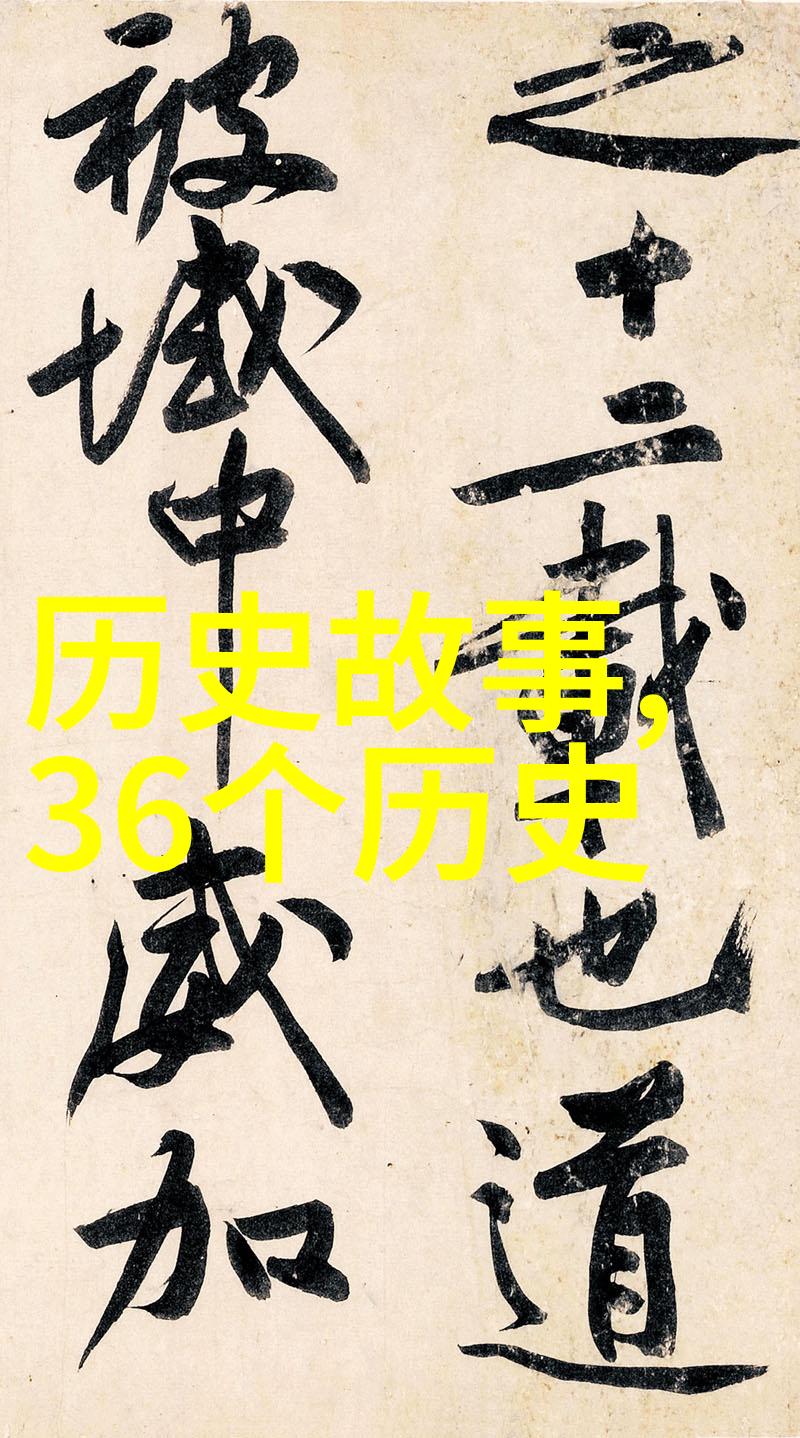 之十二載也道
被域中威加
历史故事,
36个历史